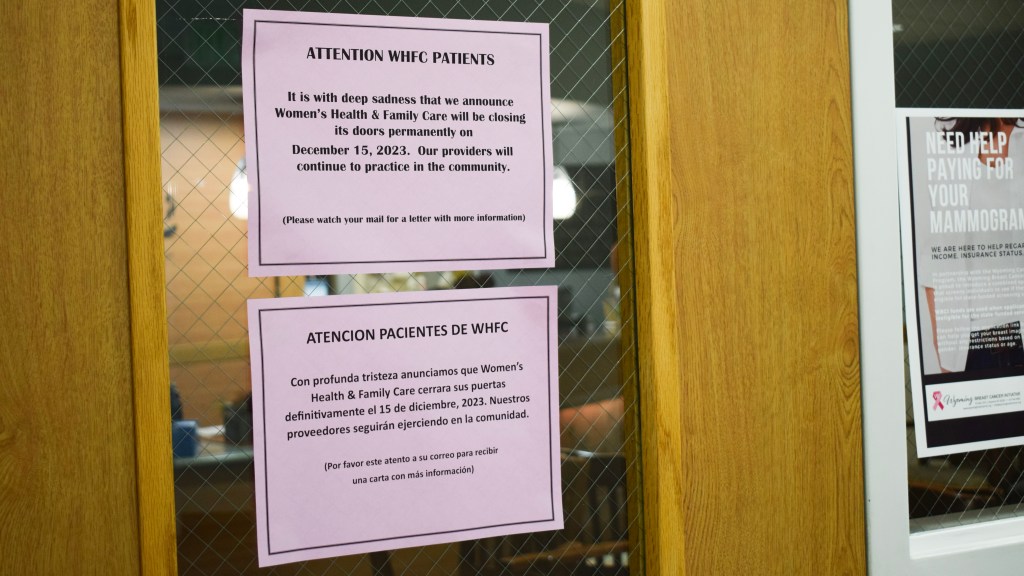 ATTENTION WHFC PATIENTS
It is with deep sadness that we announce
Women's Health & Family Care will be closing
its doors permanently on
December 15, 2023. Our providers will
continue to practice in the community.
(Please watch your mail for a letter with more information)
ATENCION PACIENTES DE WHFC
Con profunda tristeza anunciamos que Women's
Health & Family Care cerrara sus puertas
definitivamente el 15 de diciembre, 2023. Nuestros
proveedores seguirán ejerciendo en la comunidad.
(Por favor este atento a su correo para recibir
una carta con más información)
NEED HELP
PAYING FOR
YOUR
MAMMOGRAM
WE ARE HERE TO HELP
INCOME, INSURANCE STATUS,
Wyoming BREAST CANCER INITIATIVE